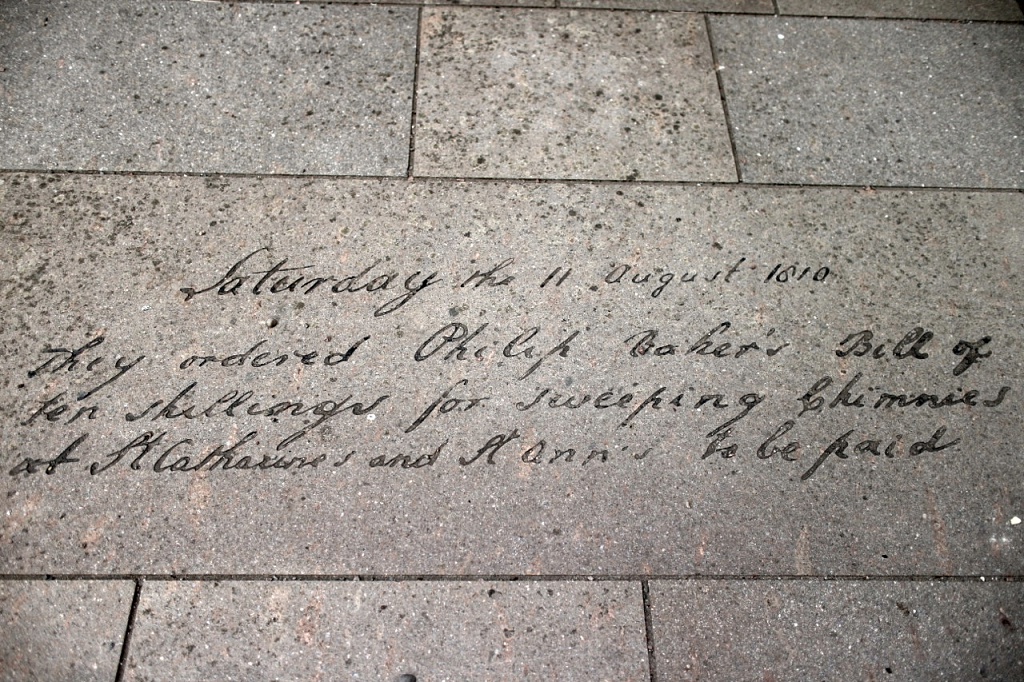 Saturday the 11 August 1810
They ordered Philip Baker's Bill of
ten shillings for sweeping Chimnies
at St Catharine's and St Ann's to be paid